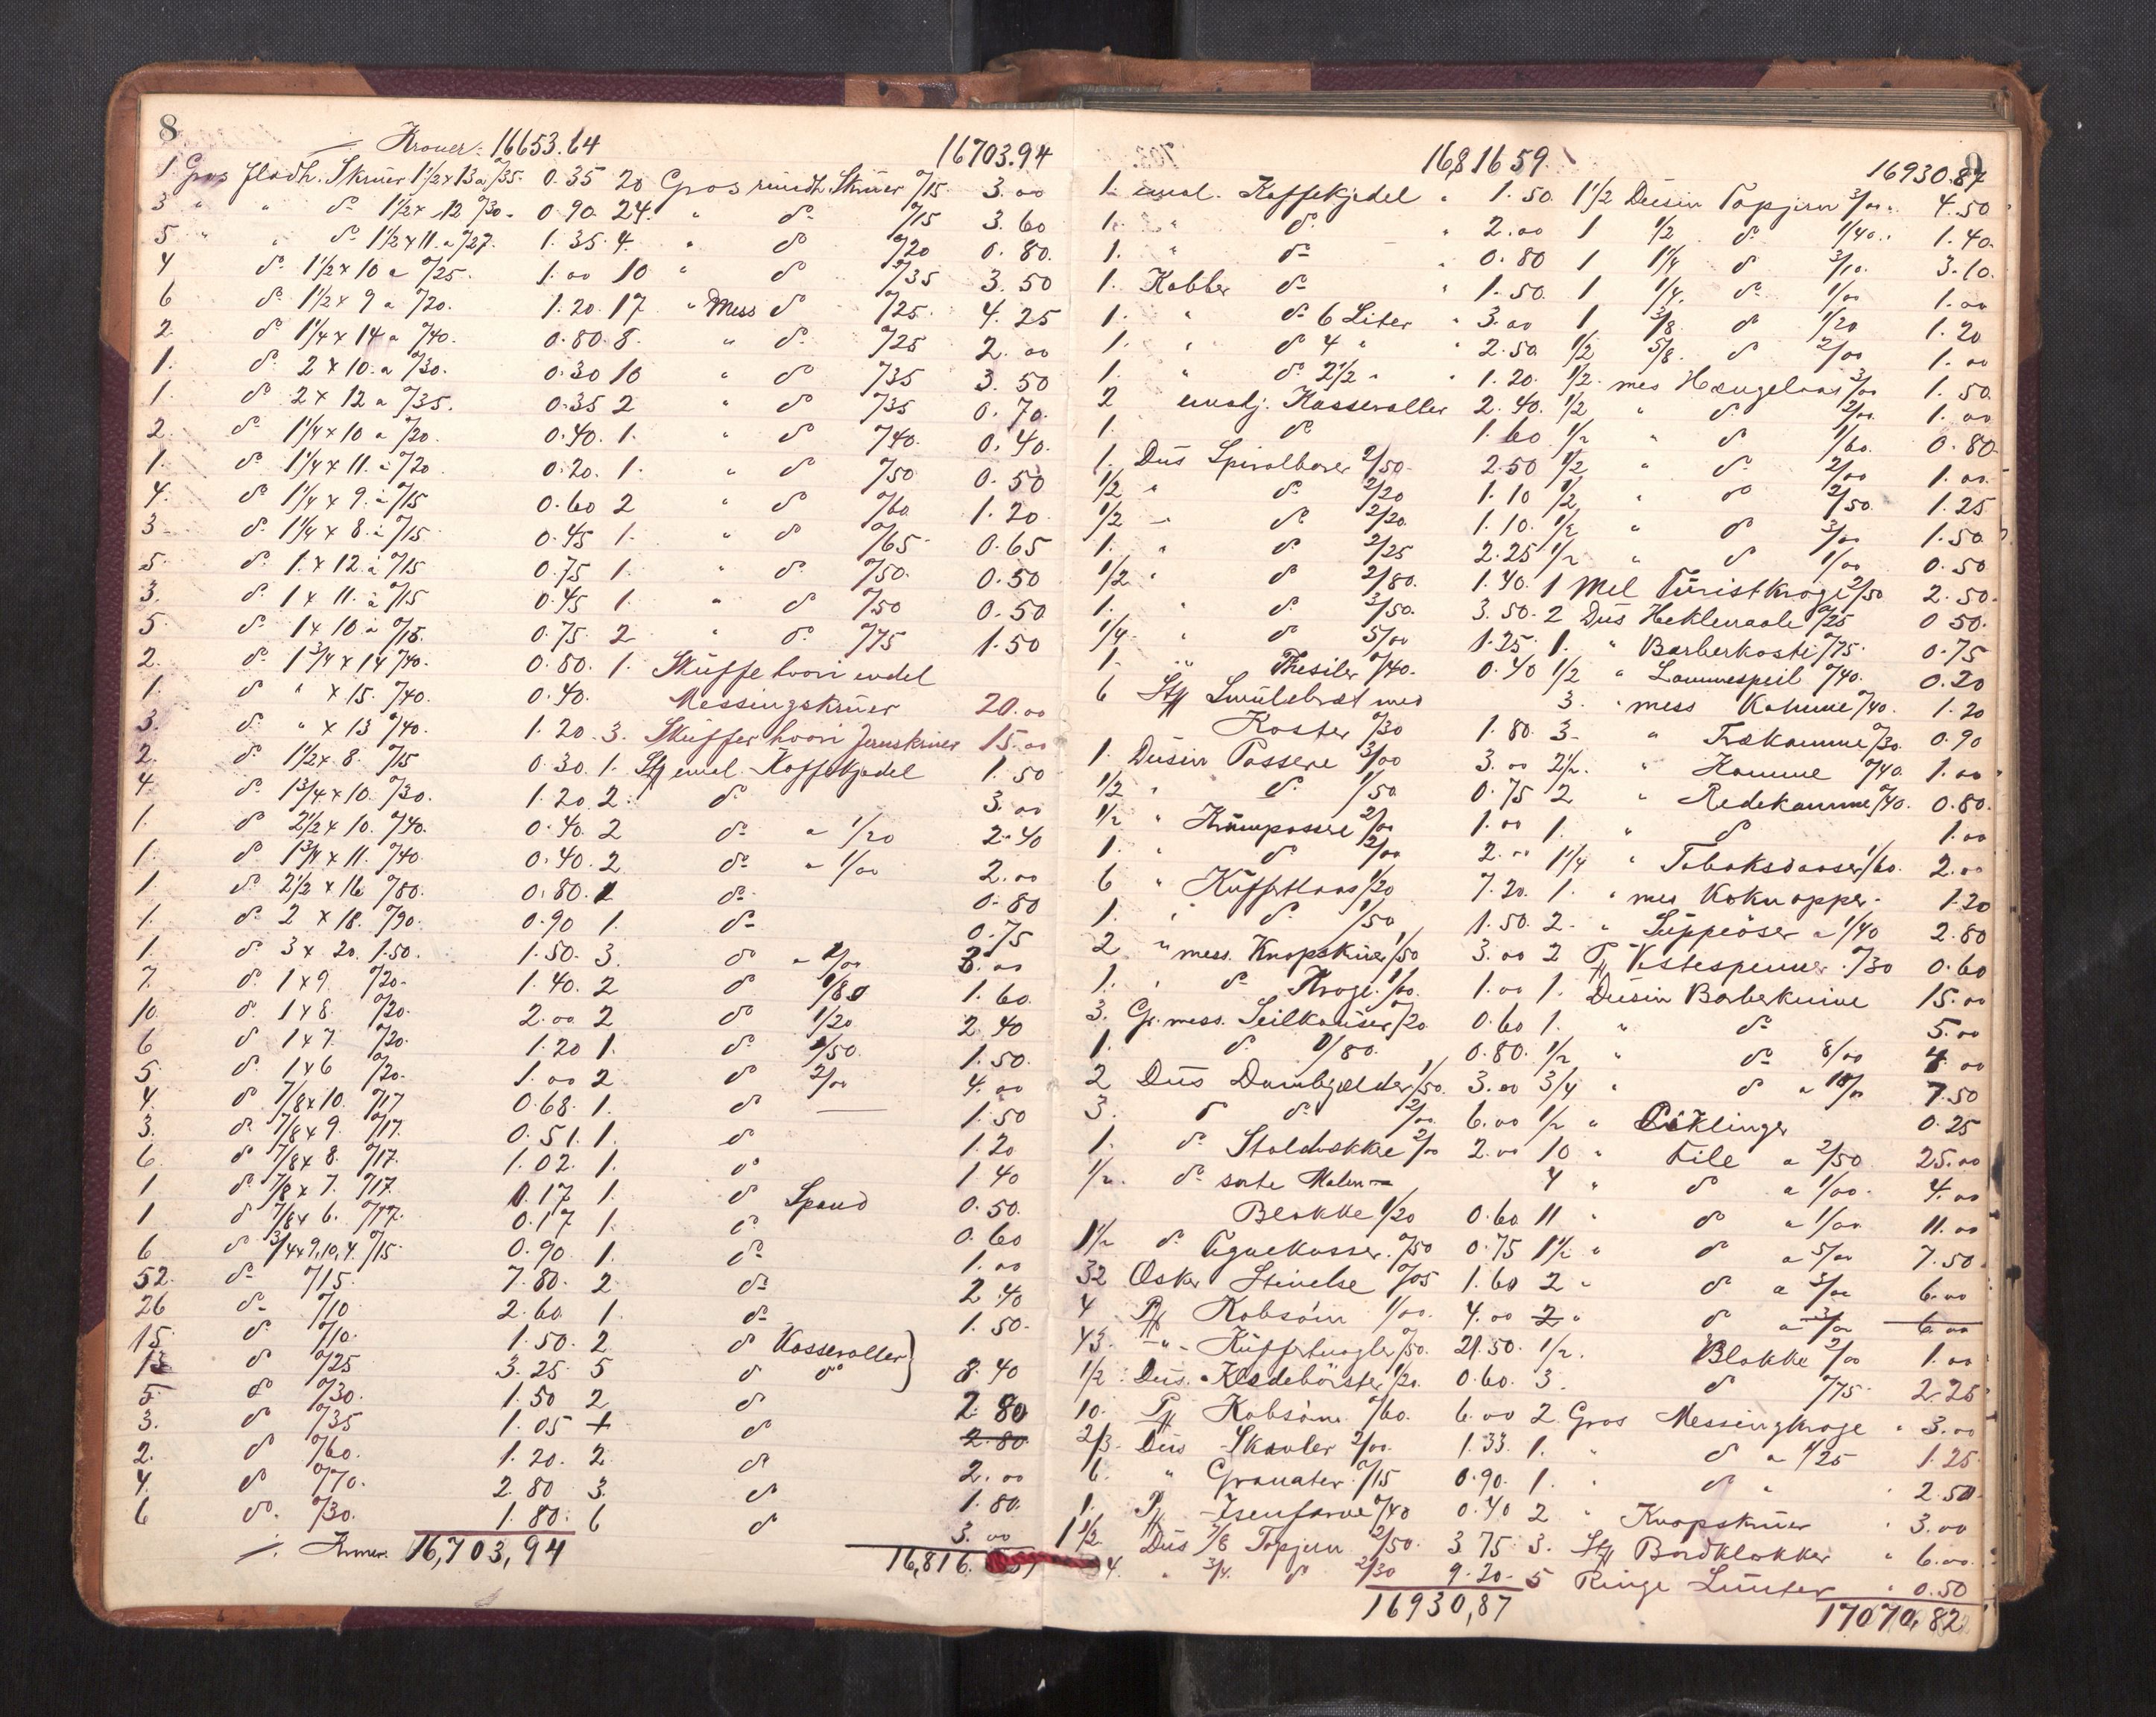 8
Kroner: 16653.64
1 Gros fladh. Skruer 1½ x 13 a 0/35. 0.35
3 " " do 1½ x 12 0/30. 0.90
5 " " do 1½ x 11 a 0/27. 1.35
4 do 1½ x 10 a 0/25. 1.00
6 do 1½ x 9 a 0/20. 1.20
2. do 1¼ x 14 a 0/40. 0.80
1. do 2 x 10. a 0/30. 0.30
1. do 2 x 12 a 0/35. 0.35
2. do 1¼ x 10 a 0/20. 0.40
1. do 1¼ x 11. a 0/20 0.20
4. do 1¼ x 9. a 0/15 0.60
3 do 1¼ x 8. a 0/15 0.45
5. do 1 x 12. a 0/15 0.75
3. do 1 x 11. a 0/15 0.45
5. do 1 x 10 a 0/15. 0.75
2. do 1¾ x 14 0/40. 0.80
1. do " x 15. 0/40. 0.40
3. do " x 13 0/40. 1.20
2. do 1½ x 8. 0/15 0.30
4. do 1¾ x 10. 0/30. 1.20
1. do 2½ x 10. 0/40. 0.40
1. do 1¾ x 11. 0/40 0.40
1. do 2½ x 16 0/80. 0.80
1. do 2 x 18. 0/90. 0.90
1. do 3 x 20. 1.50. 1.50
7. do 1 x 9. 0/20. 1.40
10. do 1 x 8. 0/20. 2.00
6 do 1 x 7. 0/20. 1.20
5. do 1 x 6 0/20. 1.00
4. do 7/8 x 10. 0/17 0.68
3. do 7/8 x 9. 0/17. 0.51
6. do 7/8 x 8. 0/17. 1.02
1 do 7/8 x 7. 0/17. 0.17
1 do 7/8 x 6. 0/17. 0.17
6 do 3/4 x 9,10,4. 0/15 0.90
52. do 0/15. 7.80
26 do 0/10 2.60
15. do 0/10. 1.50
13 do 0/25 3.25
5. do 0/30. 1.50
3. do 0/35 1.05
2. do 0/60. 1.20
4. do 0/70. 2.80
6 do 0/30. 1.80
Kroner. 16,703,94
16703.94
20 Gros rundh. Skruer 0/15. 3.00
24. " do 0/15 3.60
4. " do 0/20 0.80.
10 " do 0/35 3.50
17. " Mess do 0/25. 4.25
8. " do 0/25 2.00
10 " do 0/35 3.50
2 " do 0/35 0.70.
1. " do 0/40. 0.40.
1. " do 0/50 0.50
2 " do 0/60 1.20
1. " do 0/65 0.65
1. " do 0/50. 0.50
1. " do 0/50 0.50
2 " do 0/75 1.50
1. Skuffe hvori endel
Messingskruer 20.00
3. Skuffer hvori Jernskruer 15.00
1. Stg emal. Kaffekjedel 1.50
2. do 3.00
2 do a 1/20 2.40
2 do a 1/00 2.00
1 do 0.80
1. do 0.75
3. do 3.00
2 do 0/80 1.60
2 do 1/20 2.40
1. do 1/50. 1.50.
2 do 2/00 4.00
1. do 1.50
1. do 1.20
1. do 1.40
1. do Spand 0.50.
1. do 0.60
1. do 1.00
2 do 2.40
1. do 1.50.
2 do Kasseroller
5 do do 8.40
2 do 2.80
+ do 2.80
2. do 2.00
3. do 1.80.
6 do 3.00
16,816.
16,816 59.
1. emal. Kaffekjedel " 1.50
1. " do " 2.00
1. " do " 0.80
1. Kobber do " 1.50
1. " do 6 Liter " 3.00
1. " do 4 " " 2.50
1. " do 2½ " " 1.20
2 emalj. Kasseroller 2.40
1. do 1.60
1. Dus Spiralborer 2/50. 2.50
½ " do 2/20 1.10
½ " do 2/20. 1.10
1. " do 2/25 2.25
½ " do 2/80. 1.40
1. " do 3/50. 3.50
¼ " do 5/00 1.25
1. " Thesiler 0/40. 0.40
6 Stg Smulebræt med
Koster 0/30 1.80
1. Dusin Passere 3/00 3.00
½ " do 1/50. 0.75
½ " Krumpassere 2/00 1.00
1. " do 2/00 2.00
6 " Kuffertlaas 1/20 7.20
1. " do 1/50 1.50
2 " mess. Knopskruer 1/50 3.00
1. " do Kroge 1/00. 1.00
3. Gr. mess. Seilkouser 0/20 0.60
1. do 0/80. 0.80
2 Dus Dørhængsler 1/50. 3.00
3. do do 2/00 6.00
1. do Staldvække 2/00 2.00
½ do sorte Malen
Blokke 1/20 0.60
1½ do 0/50 0.75
32 Æsker Stivelse 0/05 1.60
4 Pk Kobsøm 1/00. 4.00
43. " Kuffertnagler 0/50. 21.50
½ Dus. Klædebørster 1/20. 0.60
10. Pk Kobsøm 0/60. 6.00
2/3 Dus Skovler 2/00 1.33
6. " Granater 0/15 0.90
1. Pk Isenfarve 0/40 0.40
1½ Dus 7/8 Topjern 2/50. 3.75
4. " 3/4. do 2/30 9.20
16930,87
9
16930.87
1½ Dusin Topjern 3/00. 4.50
1 ½ do 1/40. 1.40.
1 1¼ do 3/10. 3.10.
1 ¼ do 1/00 1.00
1 3/8 do 1/20 1.20
½ 5/8. do 2/00 1.00
½ mes Hængelaas 3/00 1.50
½ " do 2/00. 1.00
½ " do 1/60. 0.80
½ " do 2/00 1.00
½ " do 2/50. 1.25
½ " do 3/00 1.50
½ " do 1/00 0.50
1 Mel Turistkroge 2/50 2.50
2 Dus Heklenaale 0/25 0.50.
1. " Barberkoste 0/75. 0.75
½ " Lommespeil 0/40. 0.20
3. " mess Kamme 0/40. 1.20
3. " Trækamme 0/30. 0.90
2½. " Kamme 0/40. 1.00
2 " Redekamme 0/40. 0.80.
1. " do 1.00
1¼ " Tobaksdaaser 1/60. 2.00
1. " mes Kaknapper. 1.20
2. " Suppeøser a 1/40 2.80
2 Pk Vestespenner 0/30 0.60
1. Dusin Barberknive 15.00
1. " do 5.00
½ " do 8/00 4.00
¾ " do a 10/00 7.50
½ " 0.25
10 " File a 2/50 25.00
4 " do a 1/00. 4.00
11 " do a 1/00 11.00
1½ " do a 5/00 7.50
2 " do a 3/00 6.00
2 " do a 3/00 6.00
½. Blokke 2/00 1.00
3. do 0/75. 2.25
2 Gros Messingkroge " 3.00
1. " do a 1/25 1.25
1. " do " 2.50
2 " Knopskruer " 3.00
3. Stg Bordklokker " 6.00.
5 Ringe Lunter " 0.50
17070,82